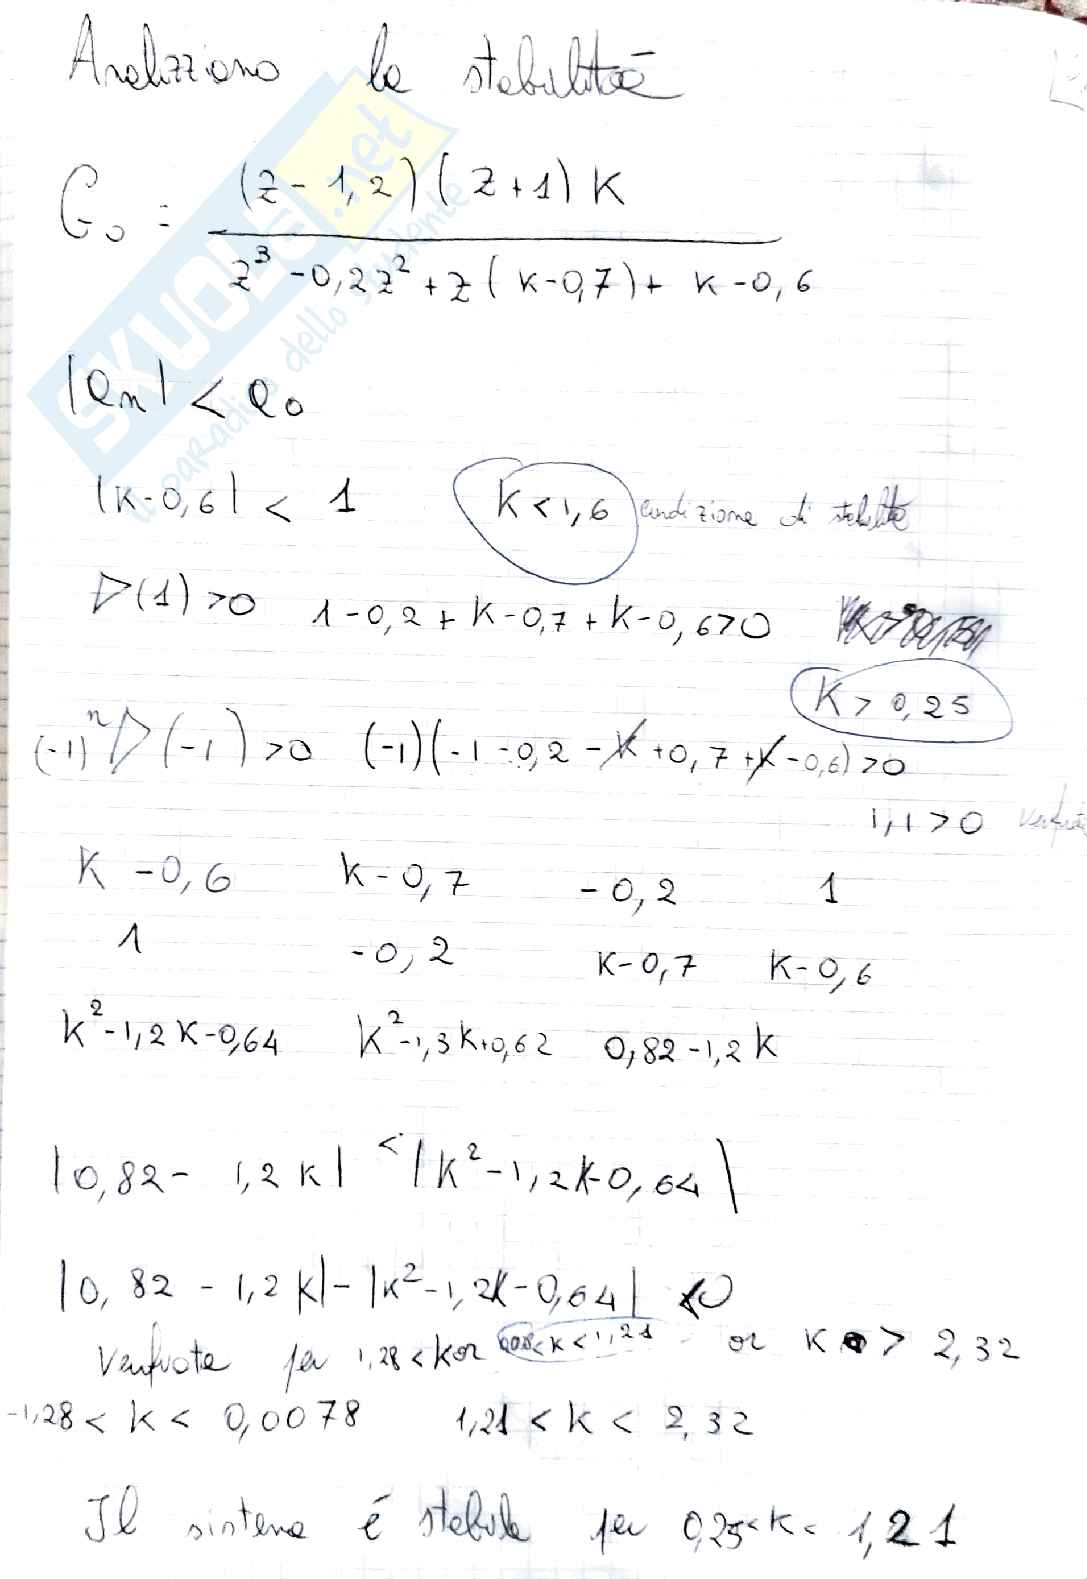 Analizziamo la stabilità
G₀ = (z-1,2)(z+1)K / z³-0,2z²+z(K-0,7)+K-0,6
SKUOLA.net
il paradiso dello studente
|an| < a0
|K-0,6| < 1 K<1,6 condizione di stabilità
D(1)>0 1-0,2+K-0,7+K-0,6>0
K>0,25
(-1)ⁿD(-1)>0 (-1)(-1-0,2-K+0,7+K-0,6)>0
1,1>0
K-0,6 K-0,7 -0,2 1
1 -0,2 K-0,7 K-0,6
K²-1,2K-0,64 K²-1,3K+0,62 0,82-1,2K
|0,82-1,2K| < |K²-1,2K-0,64|
|0,82-1,2K|-|K²-1,2K-0,64| <0
Verificata per 1,28<K or <K<1,21 or K > 2,32
-1,28<K<0,0078 1,21<K<2,32
Il sistema é stabile per 0,25<K<1,21